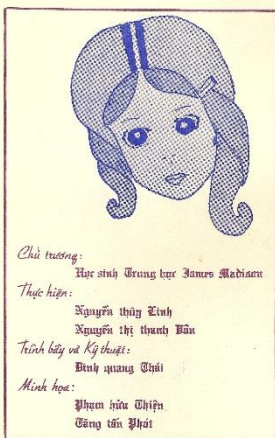 Chủ trương:
Học sinh Trung học James Madison
Thực hiện:
Nguyễn thùy Linh
Nguyễn thị thanh Vân
Trình bầy và Kỹ thuật:
Đinh quang Thái
Minh họa:
Phạm hữu Thiện
Tăng tấn Phát